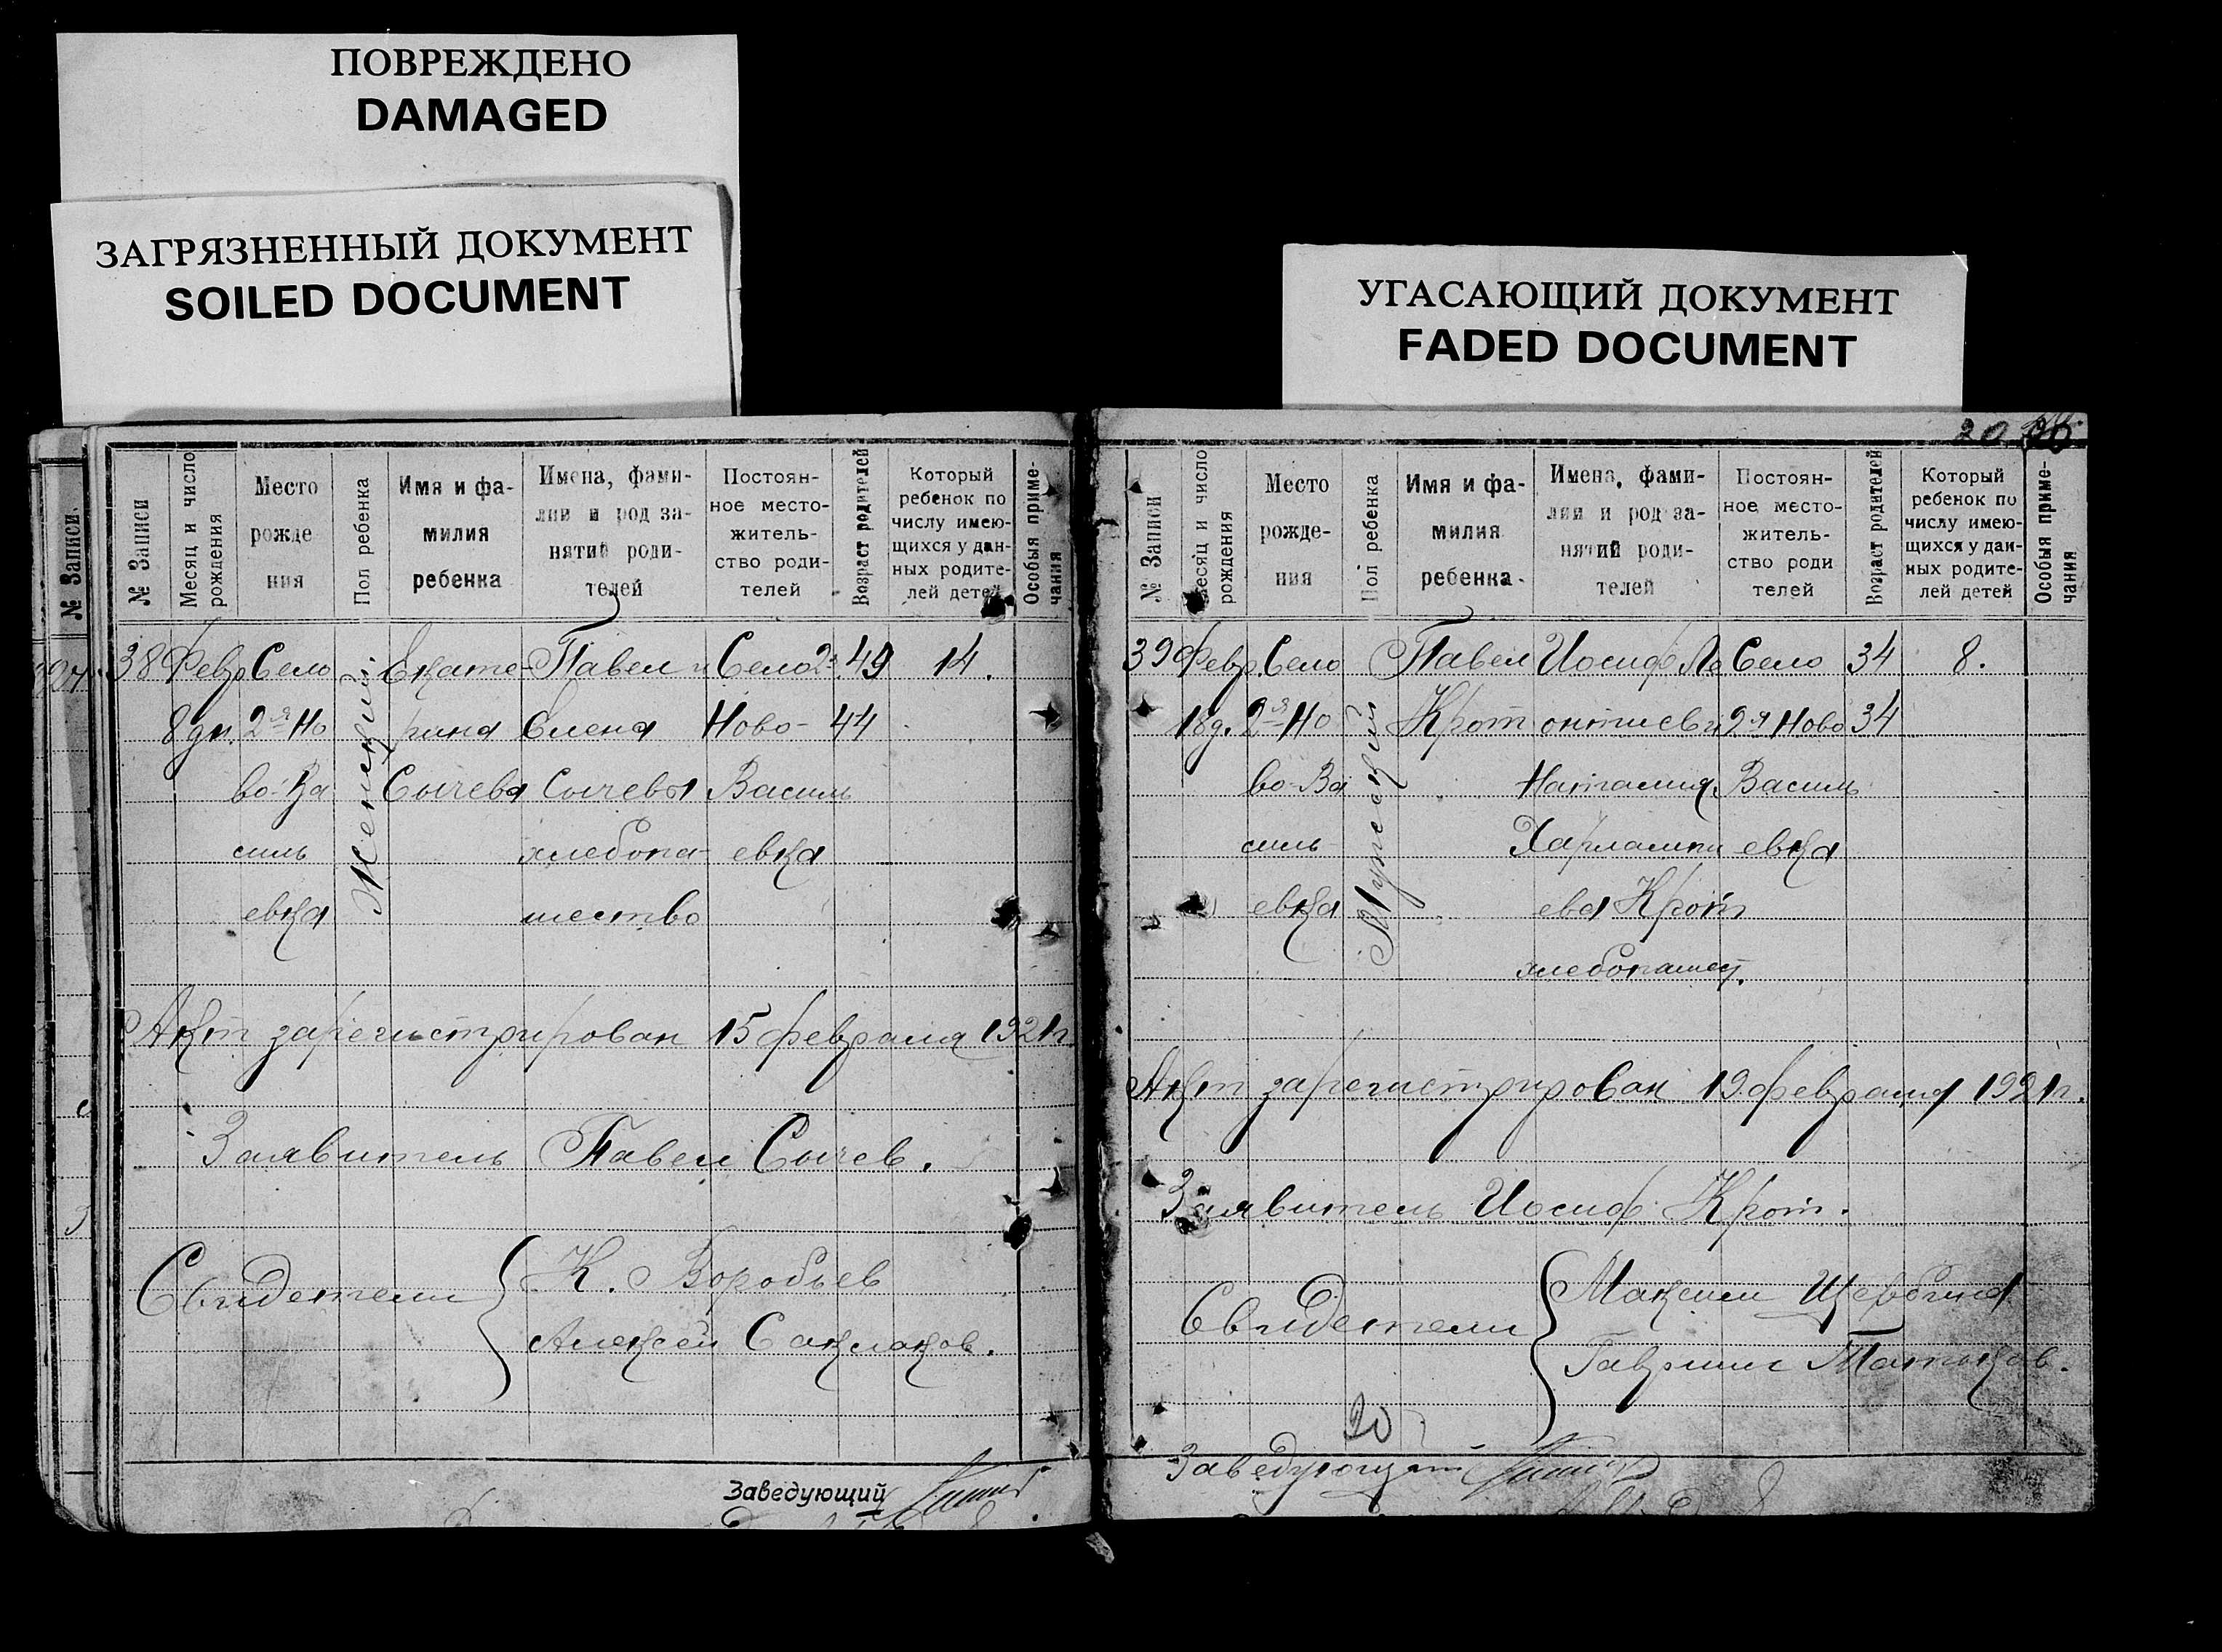 ПОВРЕЖДЕНО
DAMAGED
ЗАГРЯЗНЕННЫЙ ДОКУМЕНТ
SOILED DOCUMENT
УГАСАЮЩИЙ ДОКУМЕНТ
FADED DOCUMENT
№ Записи.
№ Записи
Месяц и число рождения
Место рожде ния
Пол ребенка
Имя и фа-
милия
ребенка
Имена, фами-
лии и род за-
нятий роди-
телей
Постоян-
ное место-
житель-
ство роди-
телей
Возраст родителей
Который
ребенок по
числу имею-
щихся у дан-
ных родите-
лей детей
Особыя приме-
чания
38 Февр Село Екате- Павел и Село 2я 49 14.
8 дн. 2-я Но рина Елена Ново- 44
во-Ва Сычева Сычевы Василь
силь хлебопа- евка
евка шество
Женский
Акт зарегистрирован 15 февраля 1921 г.
Заявитель Павел Сычев.
Свидетели К. Воробьев
Алексей Саклаков.
Заведующий
20
№ Записи
Месяц и число рождения
Место
рожде-
ния
Пол ребенка
Имя и фа-
милия
ребенка
Имена, фами-
лии и род за-
нятий роди-
телей
Постоян-
ное место-
житель-
ство роди
телей
Возраст родителей
Который
ребенок по
числу имею-
щихся у дан-
ных родите-
лей детей
Особыя приме-
чания
39 Февр. Село Павел Иосиф Ле Село 34 8.
18 д. 2-я Но Крот онтиеви 2я Ново 34
во-Ва Наталия Василь
силь Харлампи евка
евка ева Крот
хлебопашес.
Мужский
Акт зарегистрирован 19 февраля 1921 г.
Заявитель Иосиф Крот.
Свидетели Максим Щербина
Гавриил Татьков.
20
Заведующий